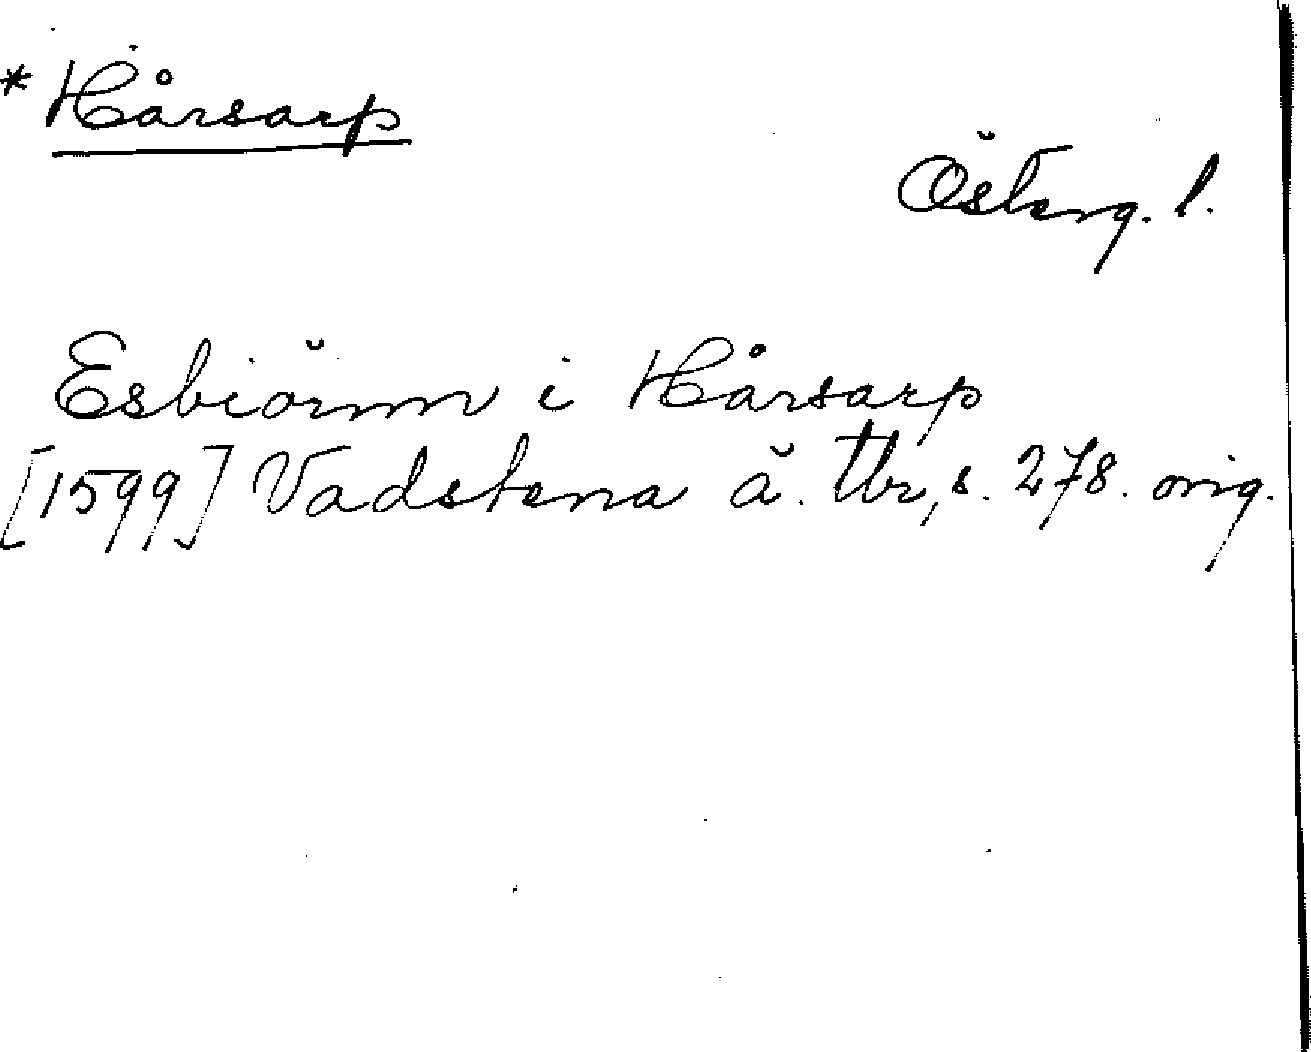 *Hårsarp
Österg. l.
Esbiörnn i Hårsarp
[1599] Vadstena ä. tbr, s. 278. orig.